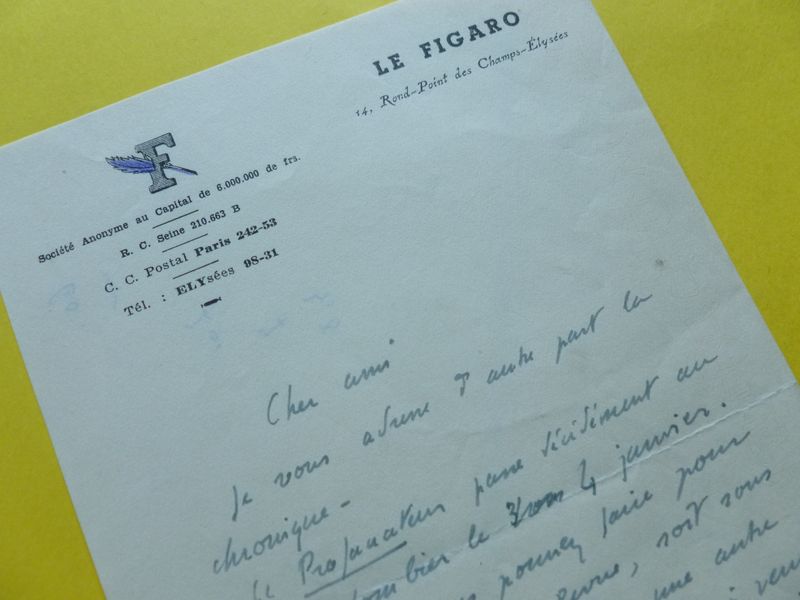 LE FIGARO
14, Rond-Point des Champs-Élysées
F
Société Anonyme au Capital de 6.000.000 de frs.
R. C. Seine 210.663 B
C. C. Postal Paris 242-53
Tél. : ELYsées 98-31
Cher ami
Je vous adresse d'autre part la
chronique -
Le Profanateur passe décidément au
Colombier le 4 janvier.
pourriez faire pour
Revue, soit sous
une autre